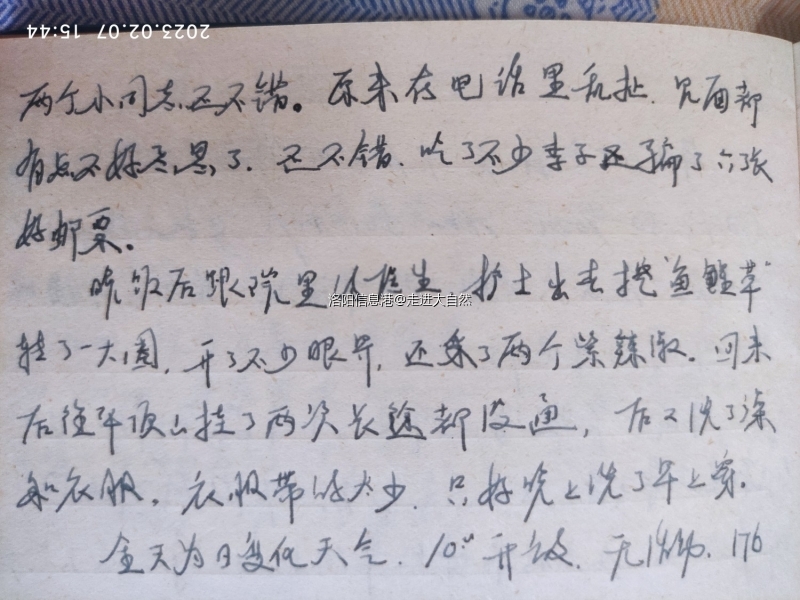 2023.02.07 15:44
两个小同志还不错。原来在电话里乱扯.见面都
有点不好意思了.还不错.吃了不少李子还骗了六张
好邮票。
晚饭后跟院里 医生 护士出去挖"鱼腥草"
转了一大圈,开了不少眼界,还采了两个紫辣椒。回来
后往平顶山挂了两次长途都没通,后又洗了澡
和衣服。衣服带的太少.只好晚上洗了早上穿。
全天为 变化天气.10 开 . 176
洛阳信息港@走进大自然